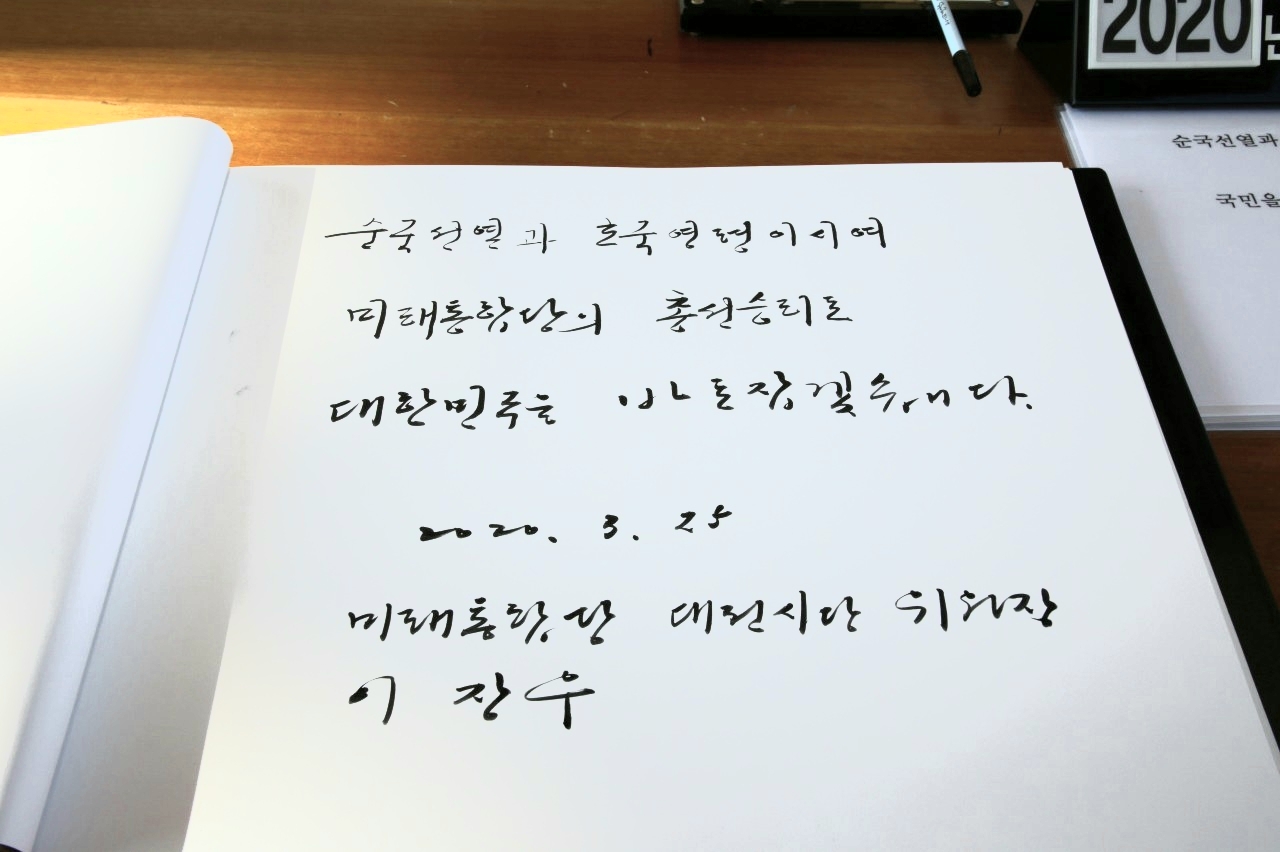 2020
순국선열과
국민을
순국선열과 호국영령이시여
미래통합당의 총선승리로
대한민국을 바로잡겠습니다.
2020. 3. 25
미래통합당 대전시당 위원장
이 장우